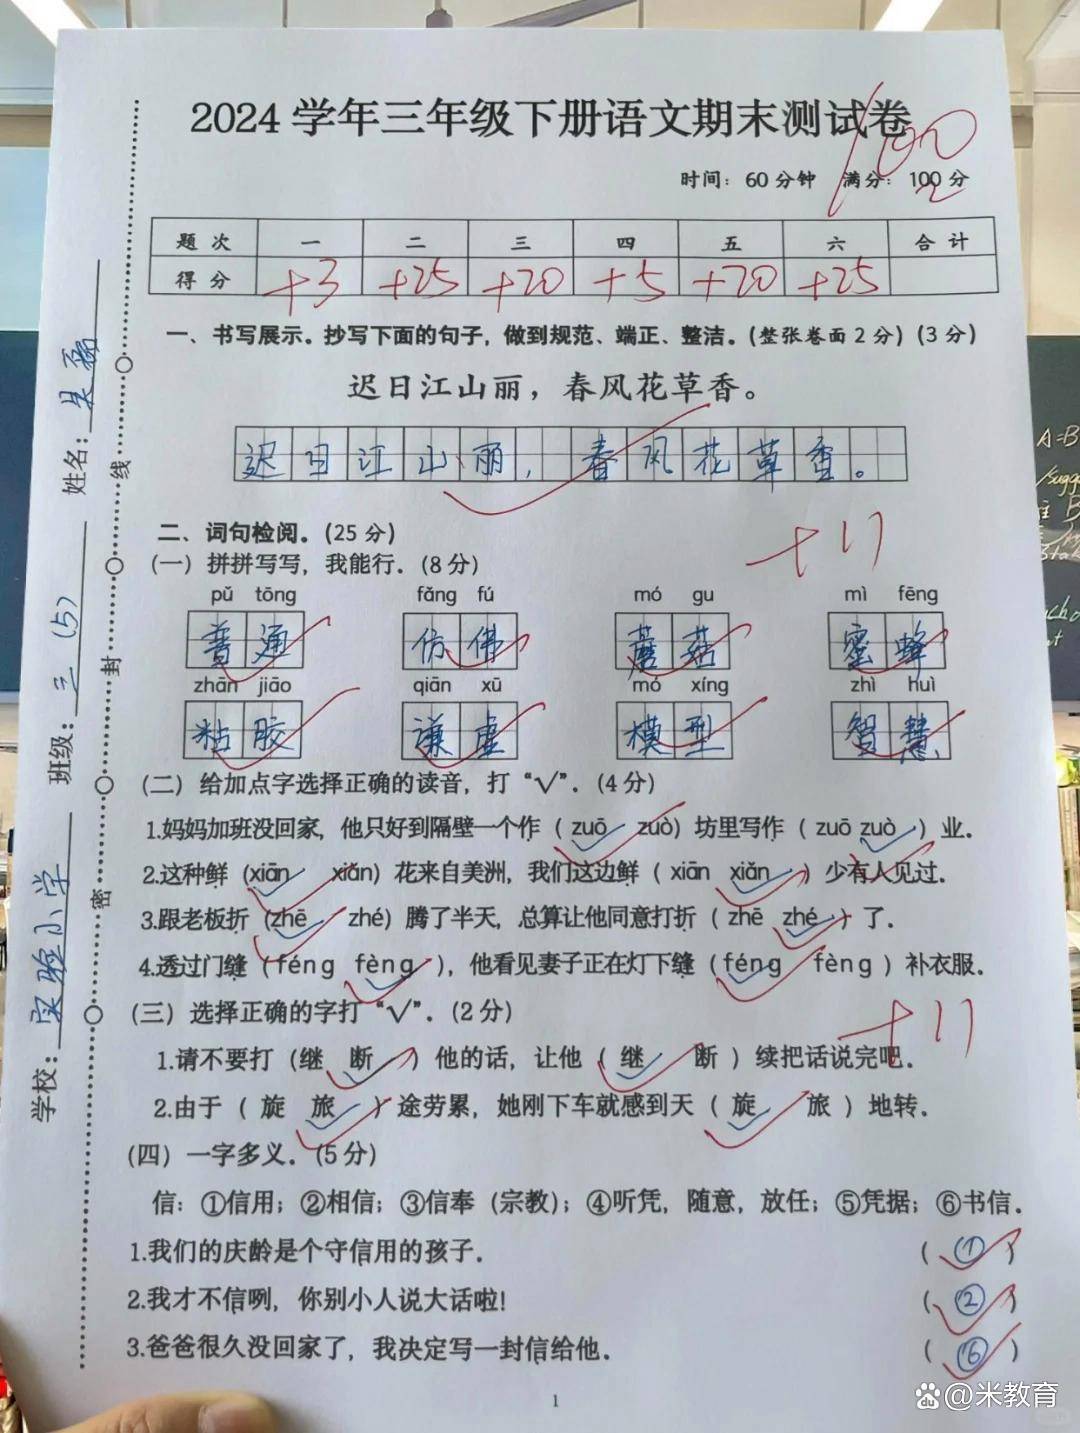 2024学年三年级下册语文期末测试卷
100
时间：60分钟 满分：100分
2
题次 一 二 三 四 五 六 合计
得分 +3 +25 +20 +5 +20 +25
一、书写展示。抄写下面的句子，做到规范、端正、整洁。(整张卷面2分)(3分)
迟日江山丽，春风花草香。
迟日江山丽，春风花草香。
二、词句检阅。(25分)
+11
(一) 拼拼写写，我能行. (8分)
pǔ tōng fǎng fú mó gu mì fēng
普通 仿佛 蘑菇 蜜蜂
zhān jiāo qiān xū mó xíng zhì huì
粘胶 谦虚 模型 智慧
(二) 给加点字选择正确的读音，打“√”. (4分)
1.妈妈加班没回家，他只好到隔壁一个作（zuō✓ zuò）坊里写作（zuō zuò✓）业.
2.这种鲜（xiān✓ xiǎn）花来自美洲，我们这边鲜（xiān xiǎn✓）少有人见过.
3.跟老板折（zhē✓ zhé）腾了半天，总算让他同意打折（zhē zhé✓）了.
4.透过门缝（féng fèng✓），他看见妻子正在灯下缝（féng✓ fèng）补衣服.
(三) 选择正确的字打“√”. (2分)
+11
1.请不要打（继 断✓）他的话，让他（继✓ 断）续把话说完吧.
2.由于（旋 旅✓）途劳累，她刚下车就感到天（旋✓ 旅）地转.
(四) 一字多义. (5分)
信：①信用；②相信；③信奉（宗教）；④听凭，随意，放任；⑤凭据；⑥书信.
1.我们的庆龄是个守信用的孩子. （①）
2.我才不信咧，你别小人说大话啦! （②）
3.爸爸很久没回家了，我决定写一封信给他. （⑥）
1
学校：实验小学 班级：三(5) 姓名：吴
密 封 线
A=B
@米教育